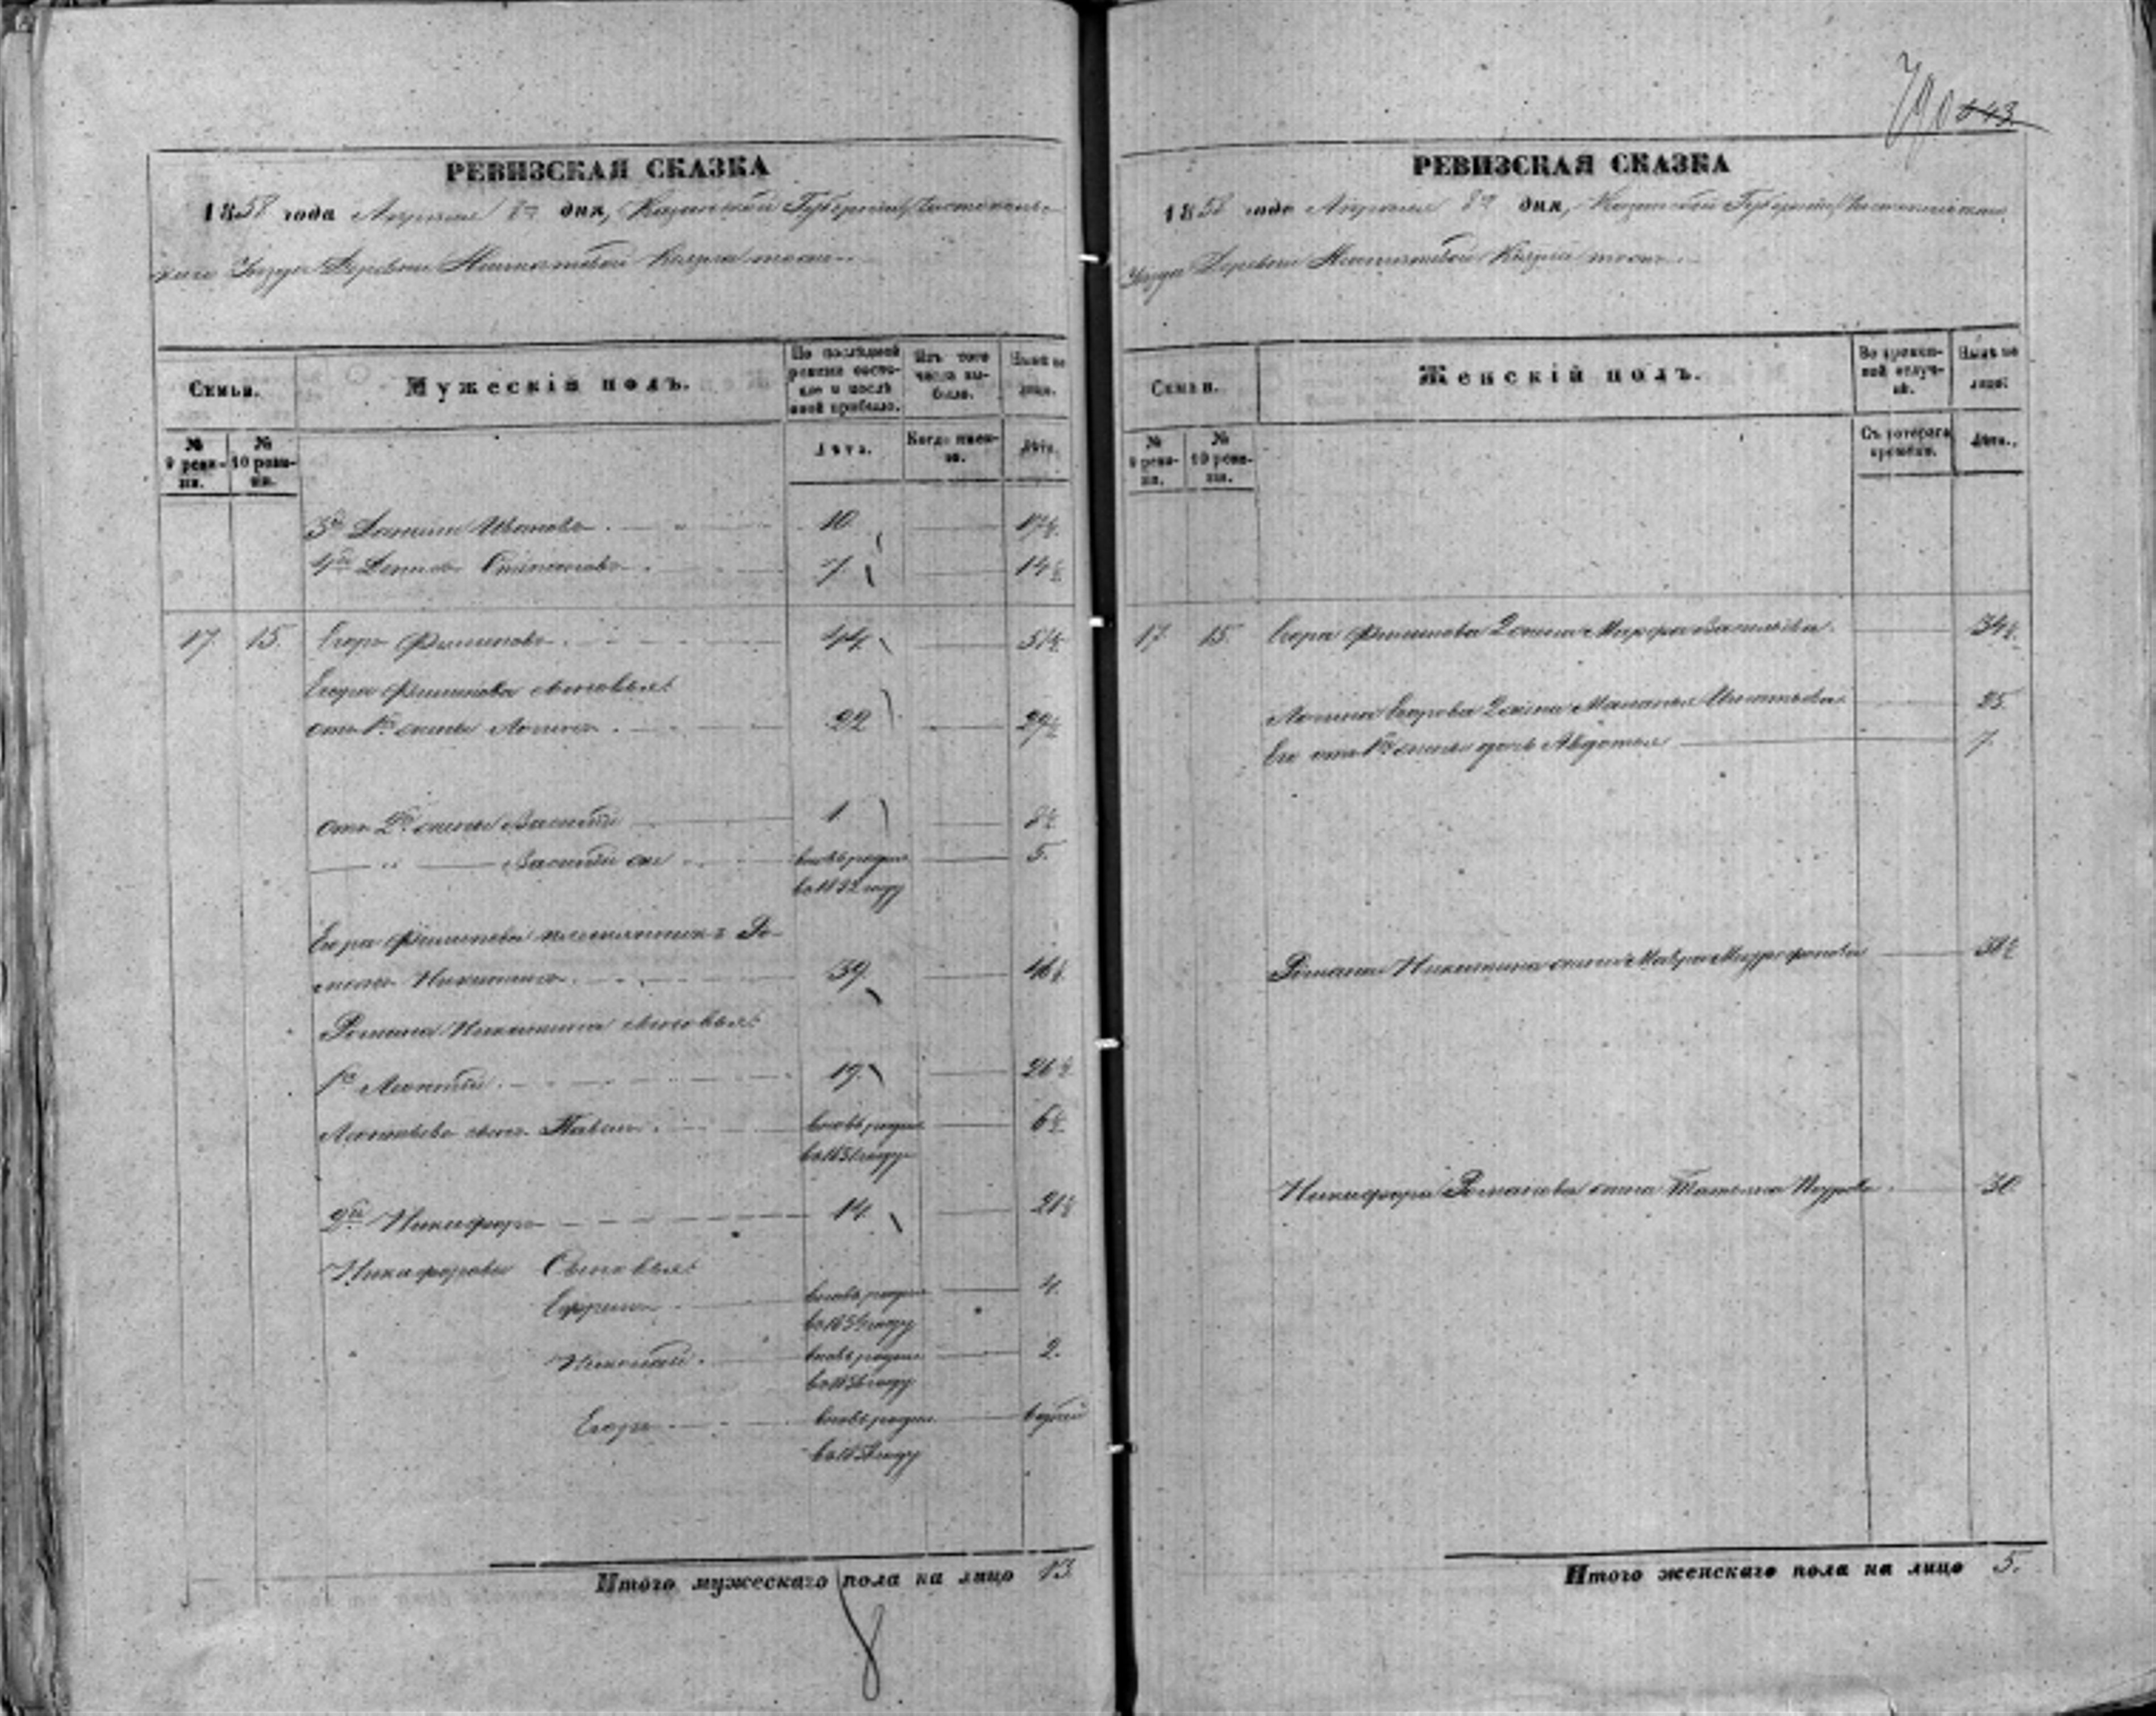 РЕВИЗСКАЯ СКАЗКА
1858 года Апреля 8го дня, Казанской Губернии Чистополь-
скаго Уезда Деревни
Семьи.
Мужескій полъ.
По последней ревизіи состояло и после оной прибыло.
Изъ того числа выбыло.
Ныне на лицо.
№ 9 ревизіи.
№ 10 ревизіи.
Лета.
Когда именно.
Лета.
3й Данило Ивановъ 10. 17½.
4й Денисъ 7. 14½
17. 15. Егоръ Филиповъ. 44. 51½.
Егора Филипова сыновья:
отъ 1й жены Логинъ. 22 29½
отъ 2й жены Василій 1. 8½
Василій же вновь рожден 5.
въ 1852 году
Егора Филипова племянникъ Ро-
манъ Никитинъ. 39. 46½.
Романа Никитина сыновья:
1й Леонтій. 19. 26½
Леонтьевъ сынъ Павелъ. вновь рожден 6½
въ 1851 году
2й Никифоръ 14. 21½
Никифоровы Сыновья:
Ефремъ вновь рожден 4.
въ 1854 году
Николай. вновь рожден 2.
въ 1856 году
Егоръ вновь рожден
въ 1858 году
Итого мужескаго пола на лицо 13.
8
790 643
РЕВИЗСКАЯ СКАЗКА
1858 года Апреля 8го дня, Казанской Губерніи Чистопольскаго
Уезда Деревни
Семьи.
Женскій полъ.
Во временной отлучке.
Ныне на лицо:
№ 9 ревизіи.
№ 10 ревизіи.
Съ котораго времени.
Лета.
17. 15. Егора Филипова 2 жена Марфа Васильева. 34½.
Логина Егорова 2 жена Маланья Игнатьева. 25.
Его отъ 1й жены дочь Авдотья 7.
Романа Никитина жена Мавра Митрофанова
Никифора Романова жена Татьяна Петрова. 30.
Итого женскаго пола на лицо 5.